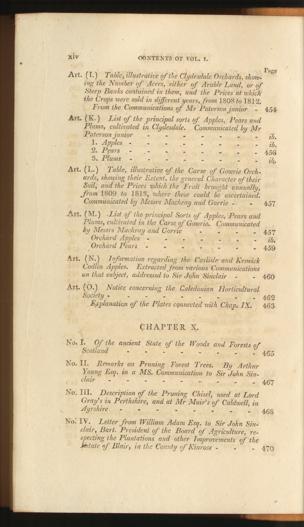 xiv CONTENTS OF VOL. I.
Page
Art. (I.) Table, illustrative of the Clydesdale Orchards, show-
ing the Number of Acres, either of Arable Land, or of
Steep Banks contained in them, and the Prices at which
the Crops were sold in different years, from 1808 to 1812.
From the Communications of Mr Paterson junior - 454
Art. (K.) List of the principal sorts of Apples, Pears and
Plums, cultivated in Clydesdale. Communicated by Mr
Paterson junior - - - - - - ib.
1. Apples - - - - - - ib.
2. Pears - - - - - - 456
3. Plums - - - - - - ib.
Art. (L.) Table, illustrative of the Carse of Gowrie Orch-
ards, showing their Extent, the general Character of their
Soil, and the Prices which the Fruit brought annually,
from 1809 to 1812, where these could be ascertained.
Communicated by Messrs Mackray and Gorrie - - 457
Art. (M.) List of the principal Sorts of Apples, Pears and
Plums, cultivated in the Carse of Gowrie. Communicated
by Messrs Mackray and Gorrie - - - - 457
Orchard Apples - - - - - - ib.
Orchard Pears - - - - - - 459
Art. (N.) Information regarding the Carlisle and Keswick
Codlin Apples. Extracted from various Communications
on that subject, addressed to Sir John Sinclair - 460
Art. (O.) Notice concerning the Caledonian Horticultural
Society - - - - - - - 462
Explanation of the Plates connected with Chap. IX. 463
CHAPTER X.
No. I. Of the ancient State of the Woods and Forests of
Scotland - - - - - - - 465
No. II. Remarks on Pruning Forest Trees. By Arthur
Young Esq. in a MS. Communication to Sir John Sin-
clair - - - - - - - 467
No. III. Description of the Pruning Chisel, used at Lord
Gray's in Perthshire, and at Mr Muir's of Caldwell, in
Ayrshire - - - - - - - 468
No. IV. Letter from William Adam Esq. to Sir John Sin-
clair, Bart. President of the Board of Agriculture, re-
specting the Plantations and other Improvements of the
Estate of Blair, in the County of Kinross - - - 470